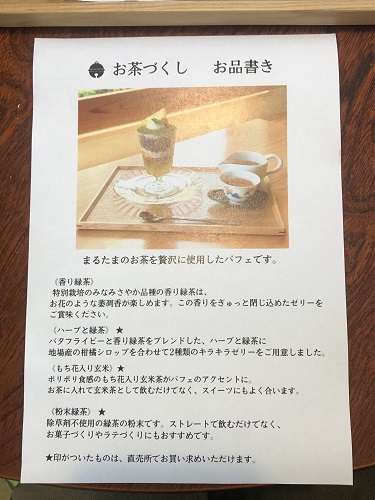 お茶づくし お品書き
まるたまのお茶を贅沢に使用したパフェです。
〈香り緑茶〉
特別栽培のみなみさやか品種の香り緑茶は、
お花のような萎凋香が楽しめます。この香りをぎゅっと閉じ込めたゼリーを
ご賞味ください。
〈ハーブと緑茶〉 ★
バタフライピーと香り緑茶をブレンドした、ハーブと緑茶に
地場産の柑橘シロップを合わせて2種類のキラキラゼリーをご用意しました。
〈もち花入り玄米〉 ★
ポリポリ食感のもち花入り玄米茶がパフェのアクセントに。
お茶に入れて玄米茶として飲むだけでなく、スイーツにもよく合います。
〈粉末緑茶〉 ★
除草剤不使用の緑茶の粉末です。ストレートで飲むだけでなく、
お菓子づくりやラテづくりにもおすすめです。
★印がついたものは、直売所でお買い求めいただけます。